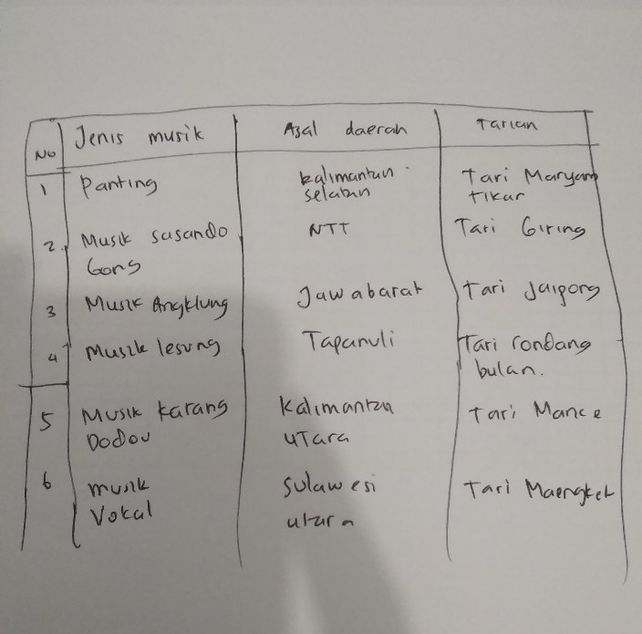 No Jenis musik Asal daerah Tarian
1 Panting Kalimantan Tari Maryam
selatan tikar
2. Musik sasando NTT Tari Giring
Gong
3 Musik Angklung Jawabarat Tari Jaipong
4 Musik lesung Tapanuli Tari rondang
bulan.
5 Musik karang Kalimantan Tari Mance
Dodou utara
6 musik Sulawesi Tari Maengket
Vokal utara